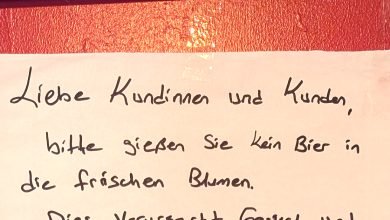 Liebe Kundinnen und Kunden,
bitte gießen Sie kein Bier in
die frischen Blumen.
Dies verursacht und